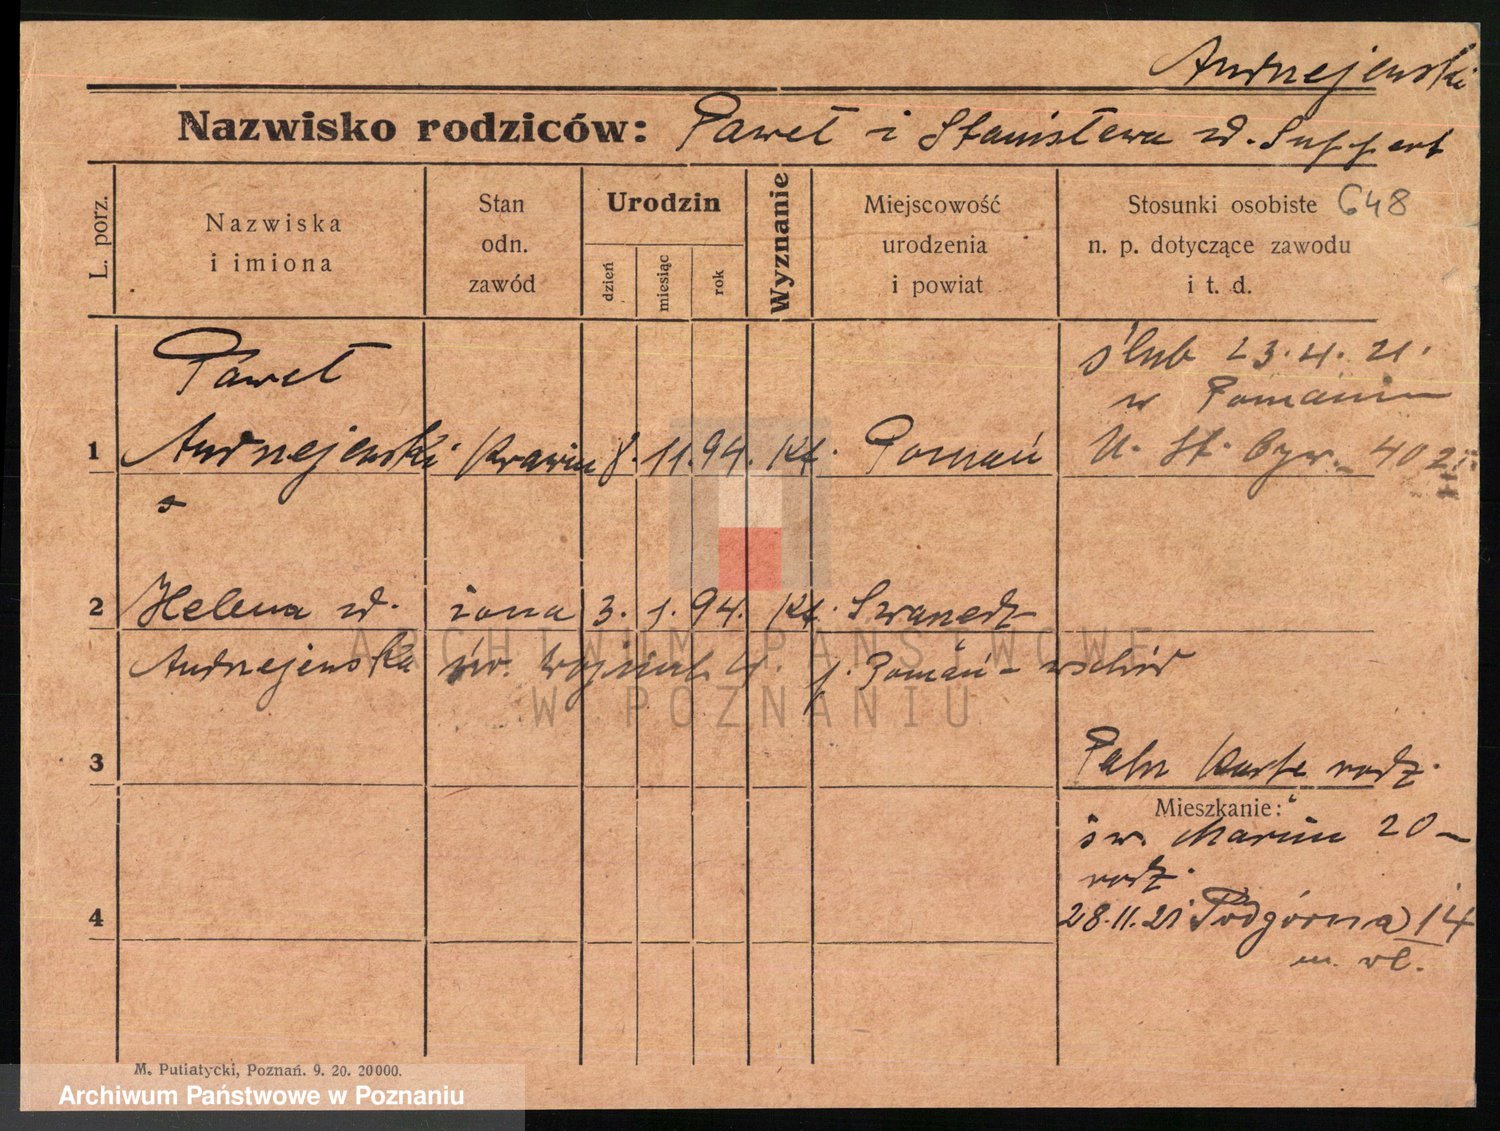 Andrzejewski
Nazwisko rodziców: Paweł i Stanisława zd. Suppert
L. porz.
Nazwiska
i imiona
Stan
odn.
zawód
Urodzin
dzień
miesiąc
rok
Wyznanie
Miejscowość
urodzenia
i powiat
Stosunki osobiste 648
n. p. dotyczące zawodu
i t. d.
Paweł
ślub 23.4.21.
w Poznaniu
1 Andrzejewski Krawiec 8. 11. 94. Kt. Poznań
U. St. Cyw. 402
2 Helena zd. żona 3. 1. 94. Kt. Swarzędz
Andrzejewska p. Poznań - wschód
3
Patrz Kartę rodz.
Mieszkanie:
św. Marcin 20
rodz.
4
28.11.21 Podgórna 14
m. wł.
M. Putiatycki, Poznań. 9. 20. 20000.
ARCHIWUM PAŃSTWOWE
W POZNANIU
Archiwum Państwowe w Poznaniu